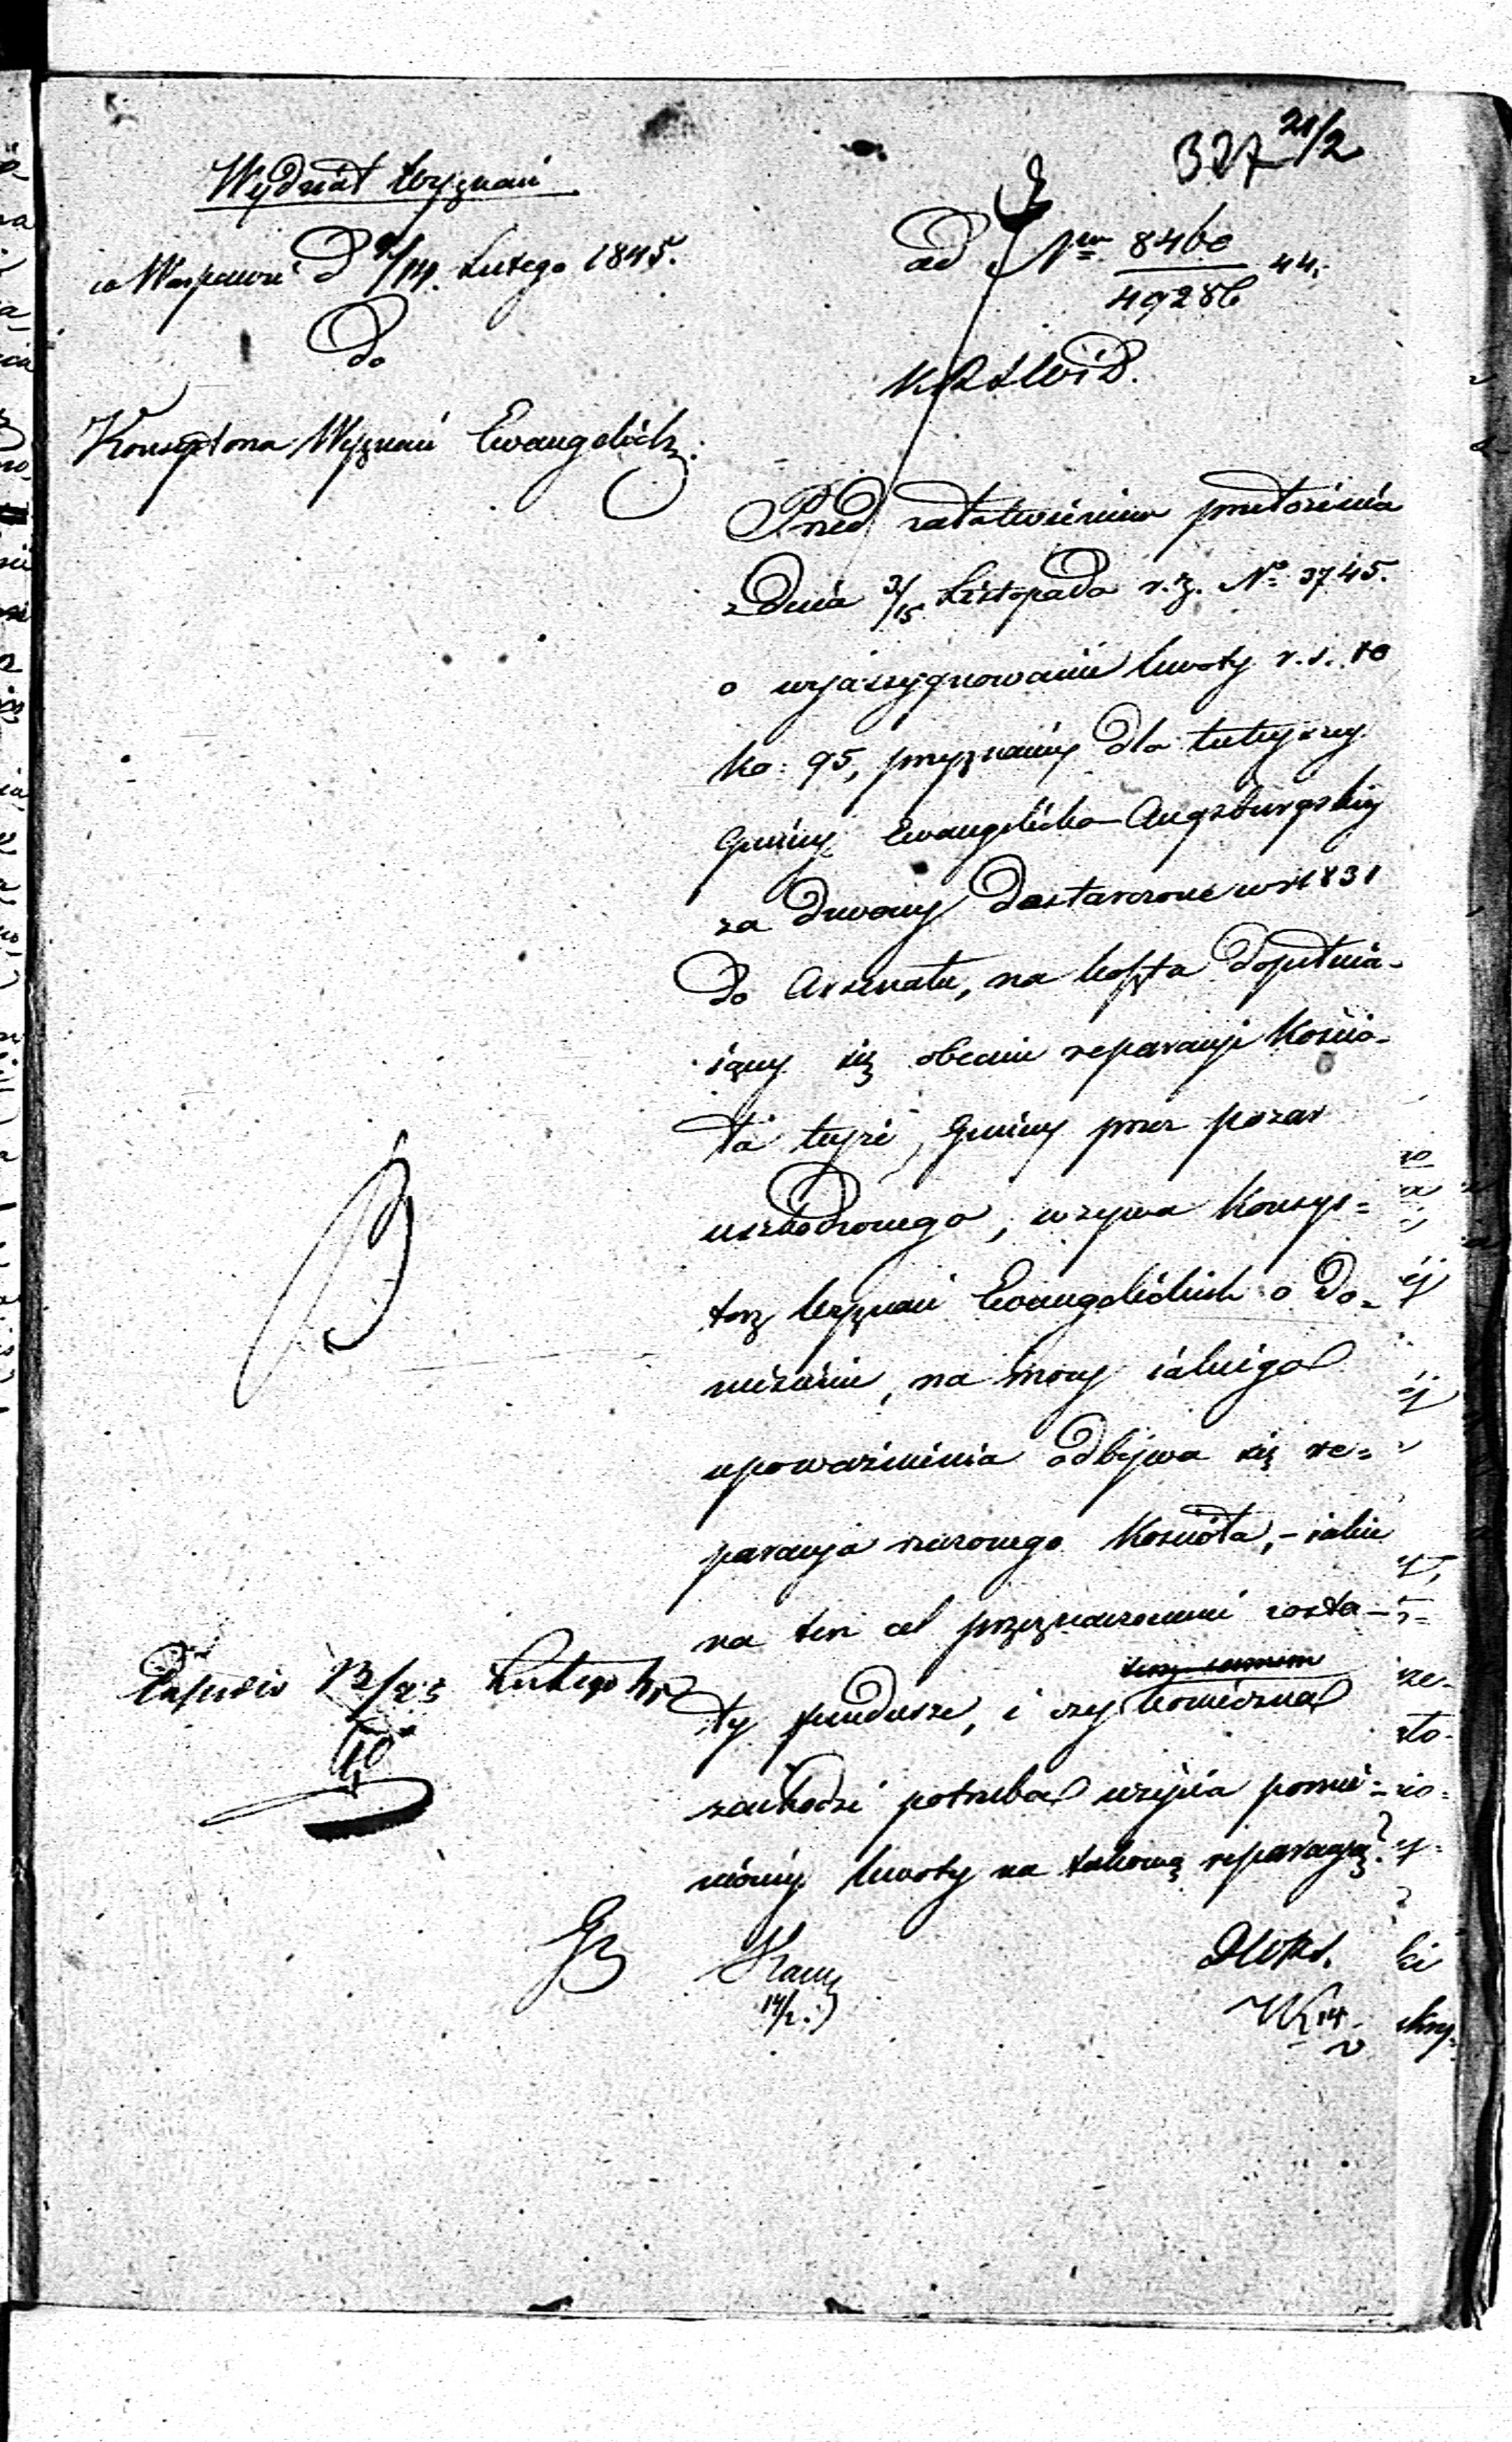 327 21/2
Wydział Wyznań
w Warszawie d 2/14. Lutego 1845.
Do
Konsystorza Wyznań Ewangelick:
ad Nr 8460/49286 44.
K.R.S.W.i D.
Przed załatwieniem przełożenia
z dnia 3/15 Listopada r. z. No 3745.
o wyassygnowanie kwoty r. s. 10
ko: 95, przyznanéj dla tutejszéj
Gminy Ewangelicko-Augsburgskiéj
za dzwony dostarczone w r. 1831
do Arsenału, na koszta dopełnia-
iącéj się obecnie reparacji Kościo-
ła tejże Gminy przez pożar
uszkodzonego, wzywa Konsys=
torz Wyznań Ewangelickich o do=
niesienie, na mocy iakiego
upoważnienia odbywa się re=
paracja rzeczonego Kościoła, – iakie
na ten cel przeznaczonemi zosta-
ły fundusze, i czy konieczna
zachodzi potrzeba użycia pomie=
nionéj kwoty na takową reparację?
Lutego
14/2.
14